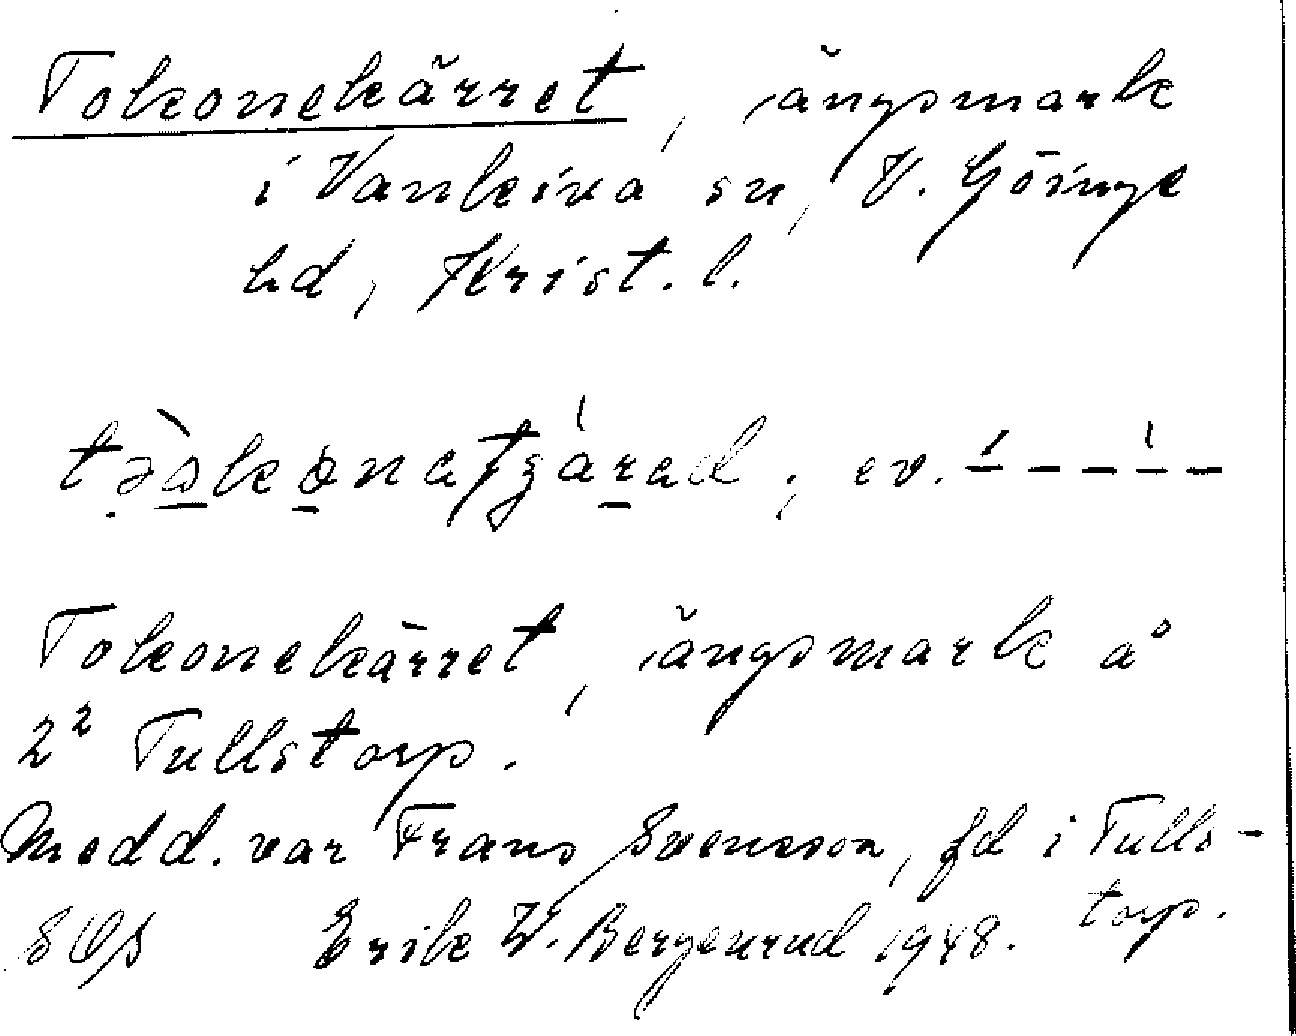 Tokonekärret, ängsmark
i Vankiva sn, V. Göinge
hd, Krist. l.
ev.
Tokonekärret, ängsmark å
2² Tullstorp.
Medd. var Frans Svensson, fd i Tulls-
torp.
Erik W. Bergenrud 1948.